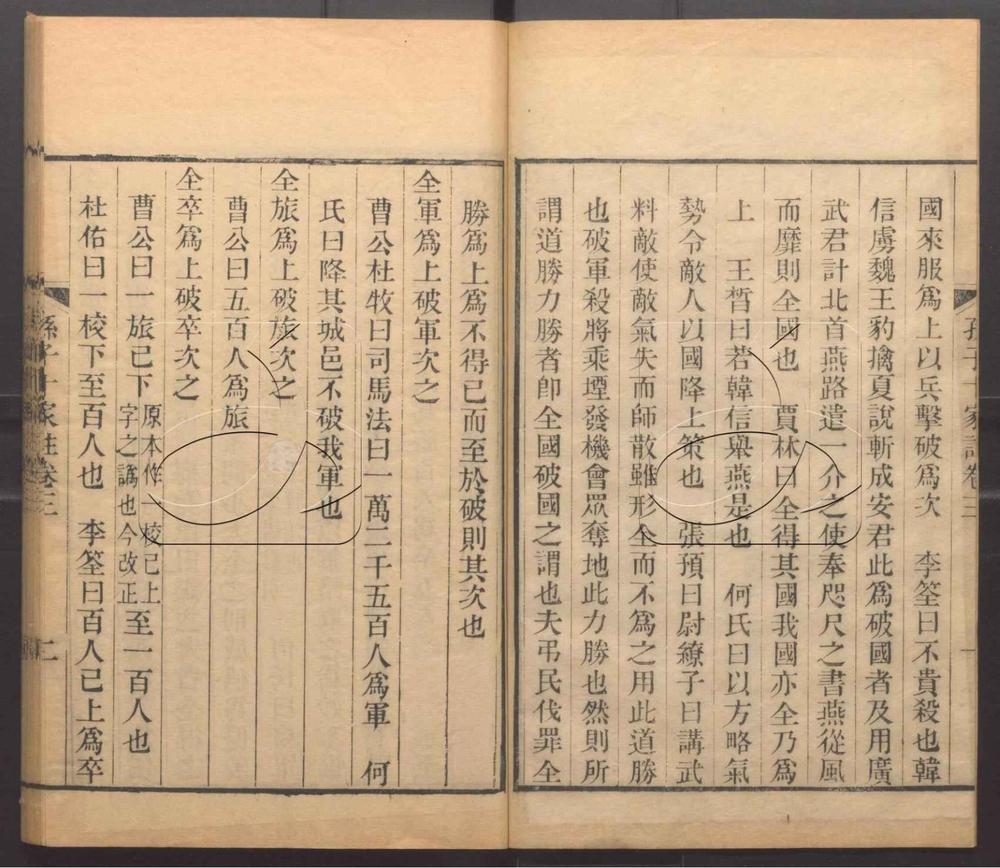 國來服爲上以兵擊破爲次　李筌曰不貴殺也韓
信虜魏王豹擒夏說斬成安君此爲破國者及用廣
武君計北首燕路遣一介之使奉咫尺之書燕從風
而靡則全國也　賈林曰全得其國我國亦全乃爲
上　王晳曰若韓信舉燕是也　何氏曰以方略氣
勢令敵人以國降上策也　張預曰尉繚子曰講武
料敵使敵氣失而師散雖形全而不爲之用此道勝
也破軍殺將乘堙發機會眾奪地此力勝也然則所
謂道勝力勝者卽全國破國之謂也夫弔民伐罪全
孫子十家註卷三
二
勝爲上爲不得已而至於破則其次也
全軍爲上破軍次之
曹公杜牧曰司馬法曰一萬二千五百人爲軍　何
氏曰降其城邑不破我軍也
全旅爲上破旅次之
曹公曰五百人爲旅
全卒爲上破卒次之
曹公曰一旅已下原本作一校已上字之譌也今改正至一百人也
杜佑曰一校下至百人也　李筌曰百人已上爲卒
孫子十家註卷三
二